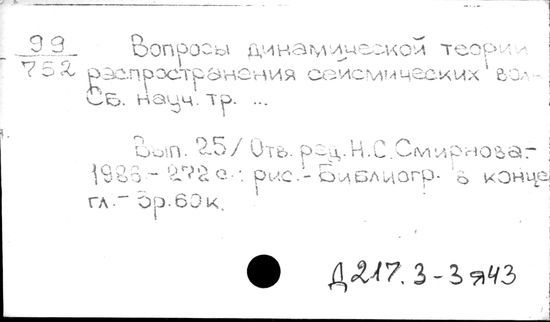 99
752
Вопросы динамической теории
распространения сейсмических вол-
Сб. науч. тр. ...
Вып. 25/Отв. ред. Н.С.Смирнова.-
1986 - 272 с.: рис.- Библиогр. в конце
гл.- 3р.60к.
Д217.3-3я43